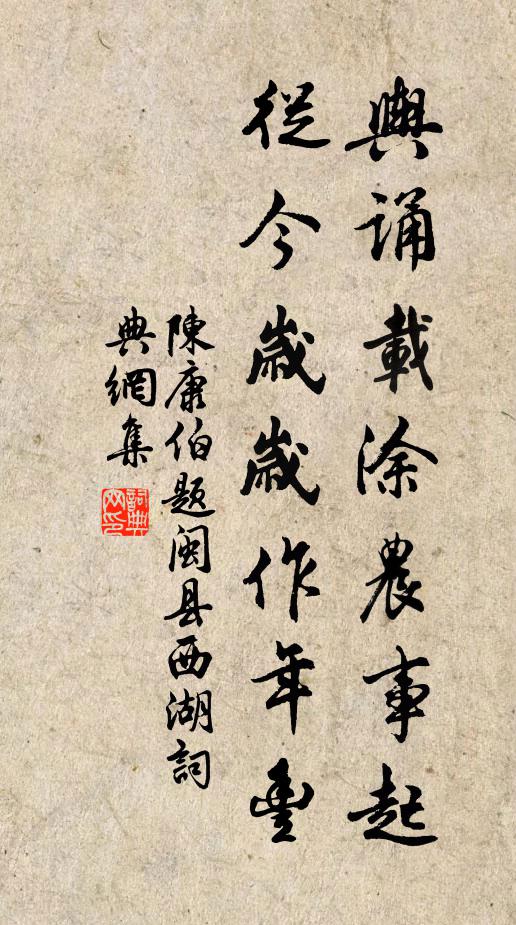 輿誦載涂農事起
從今歲歲作年豐
陳康伯題閩县西湖詞
典網集
詞典網印